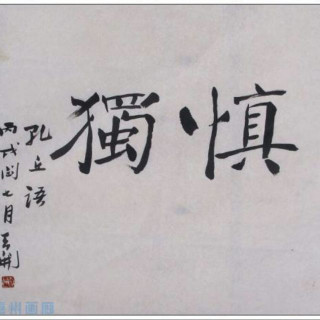 慎獨
孔丘语
丙戌闰七月